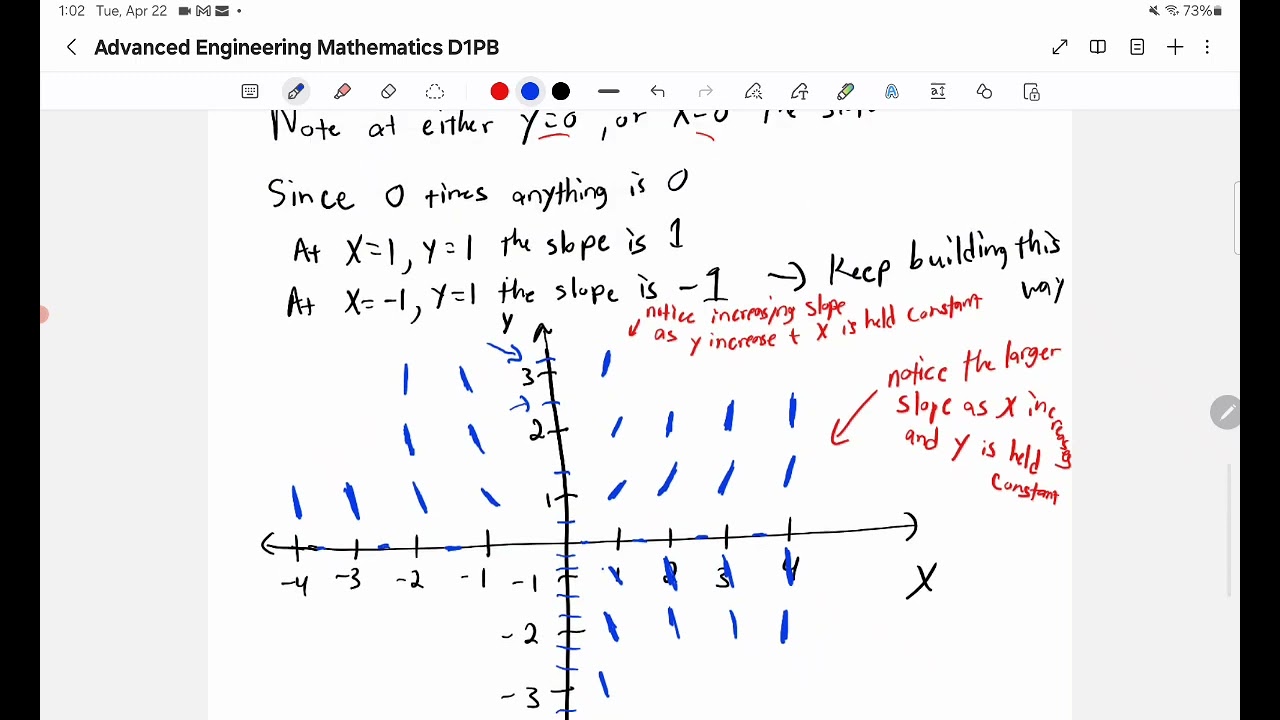 1:02 Tue, Apr 22
73%
Advanced Engineering Mathematics D1PB
Note at either y=0, or x=0 the
Since 0 times anything is 0
At x=1, y=1 the slope is 1
At x=-1, y=1 the slope is -1 → Keep building this
way
notice increasing slope
as y increase + x is held constant
notice the larger
slope as x increases
and y is held
constant
Y
3
2
1
-4 -3 -2 -1 1 2 3 4
X
-1
-2
-3